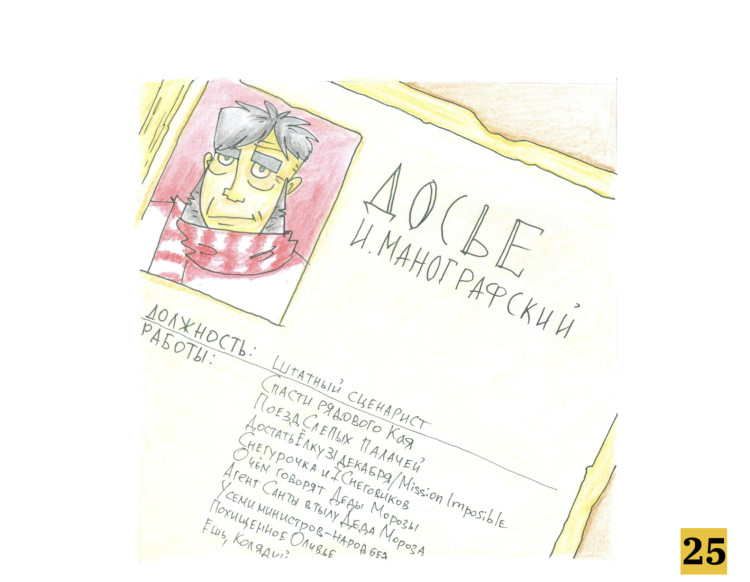 ДОСЬЕ
И. МАНОГРАФСКИЙ
ДОЛЖНОСТЬ: ШТАТНЫЙ СЦЕНАРИСТ
РАБОТЫ: СПАСТИ РЯДОВОГО КАЯ
ПОЕЗД СЛЕПЫХ ПАЛАЧЕЙ
ДОСТАТЬ ЁЛКУ 31 ДЕКАБРЯ/Mission Imposible
СНЕГУРОЧКА И 7 СНЕГОВИКОВ
О ЧЁМ ГОВОРЯТ ДЕДЫ МОРОЗЫ
АГЕНТ САНТЫ В ТЫЛУ ДЕДА МОРОЗА
У СЕМИ МИНИСТРОВ-НАРОД БЕЗ
ПОХИЩЕННОЕ ОЛИВЬЕ
ЕШЬ, КОЛЯДУЙ
25